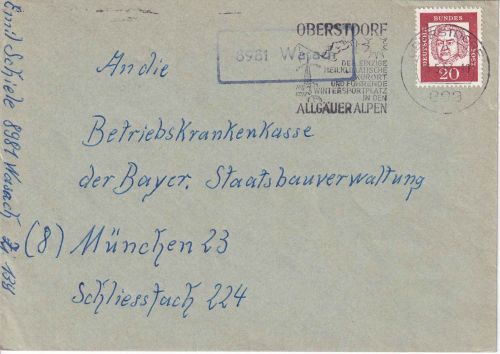 Emil Schiele 8981 Wasach
8981 Wasach
OBERSTDORF
DER EINZIGE
HEILKLIMATISCHE
KURORT
UND FÜHRENDE
WINTERSPORTPLATZ
IN DEN
ALLGÄUER ALPEN
DEUTSCHE
BUNDES
POST
20
An die
Betriebskrankenkasse
der Bayer. Staatsbauverwaltung
(8) München 23
Schliessfach 224